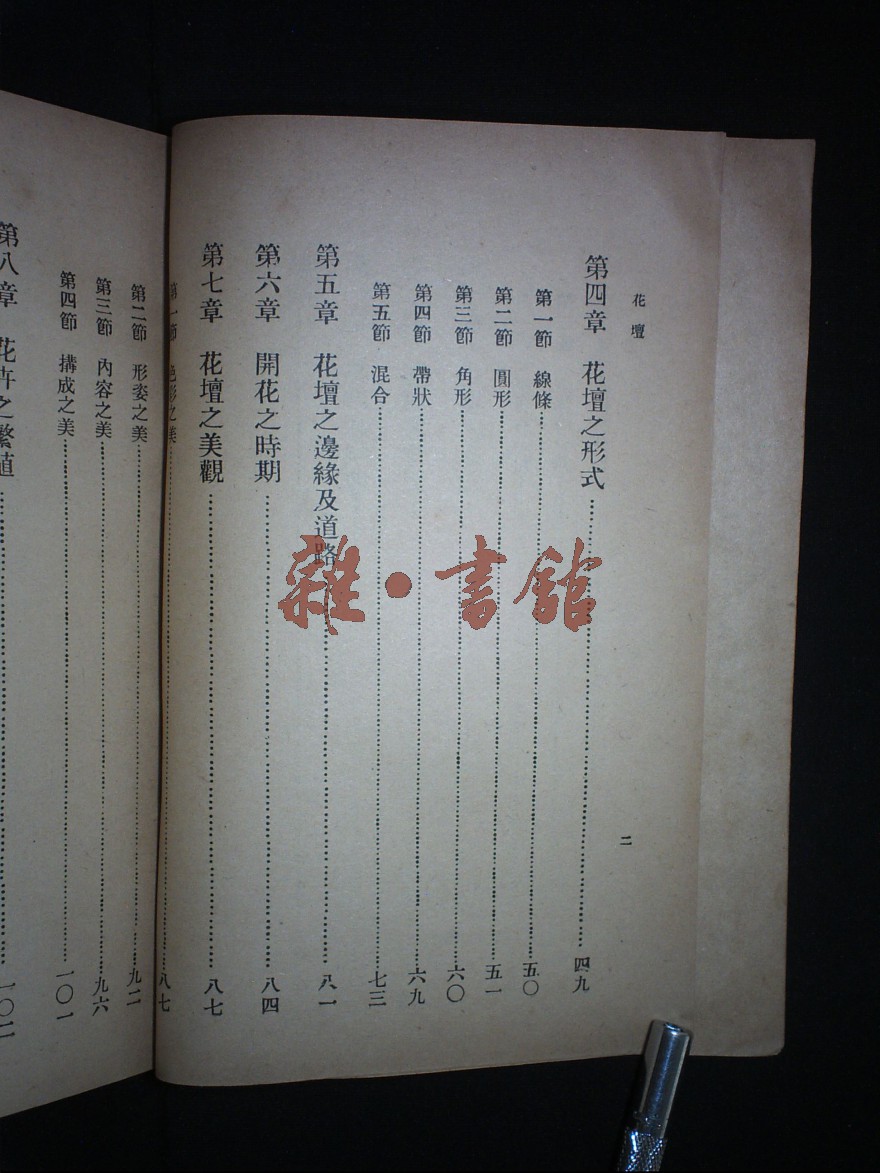 花壇
二
第四章 花壇之形式……四九
第一節 線條……五〇
第二節 圓形……五一
第三節 角形……六〇
第四節 帶狀……六九
第五節 混合……七三
第五章 花壇之邊緣及道路……八一
第六章 開花之時期……八四
第七章 花壇之美觀……八七
第一節 色彩之美……八七
第二節 形姿之美……九二
第三節 內容之美……九六
第四節 搆成之美……一〇一
第八章 花卉之繁殖……一〇二
雜·書館